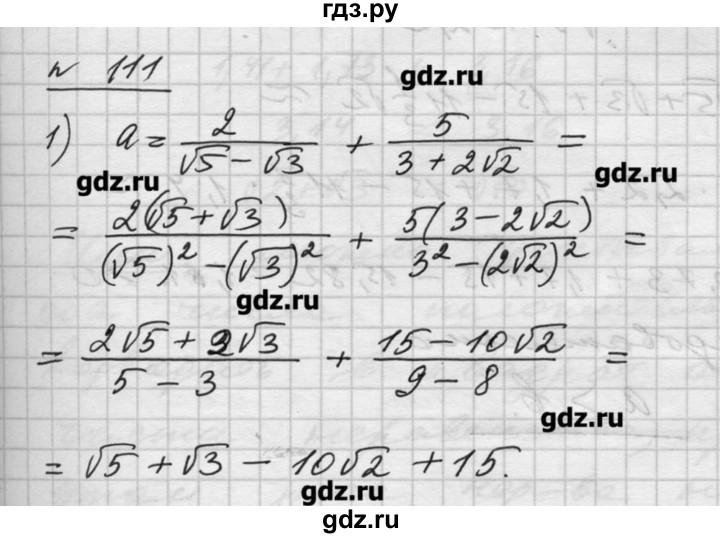 гдз.ру
№ 111
gdz.ru
1) a = 2/(√5 − √3) + 5/(3 + 2√2) =
gdz.ru
gdz.ru
= 2(√5 + √3)/((√5)² − (√3)²) + 5(3 − 2√2)/(3² − (2√2)²) =
gdz.ru
= (2√5 + 2√3)/(5 − 3) + (15 − 10√2)/(9 − 8) =
gdz.ru
= √5 + √3 − 10√2 + 15.
gdz.ru
gdz.ru